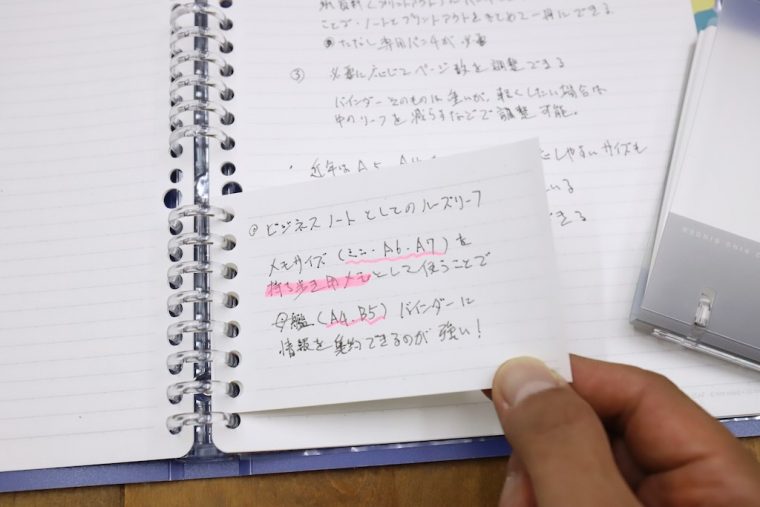 ことで・ノートとプリントアウトをまとめて一冊にできる
ただし専用パンチが必要
③ 必要に応じてページ数を調整できる
バインダーそのものは重いが、軽くしたい場合は
中のリーフを減らすなどで調整可能。
・近年はA5、A
しやすいサイズも
いる
できる
ビジネスノートとしてのルーズリーフ
メモサイズ(ミニ・A6・A7)を
持ち歩き用メモとして使うことで
母艦(A4、B5)バインダーに
情報を集約できるのが強い!